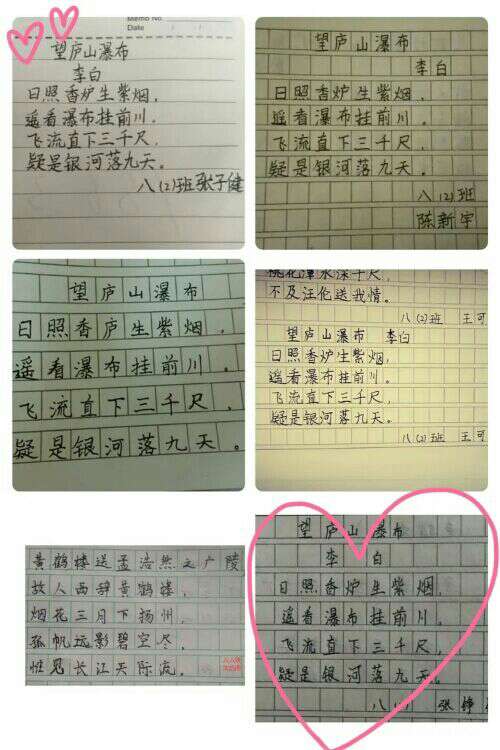 Memo No.
Date
望庐山瀑布
李白
日照香炉生紫烟,
遥看瀑布挂前川。
飞流直下三千尺,
疑是银河落九天。
八(2)班张子健
望庐山瀑布
李白
日照香炉生紫烟,
遥看瀑布挂前川。
飞流直下三千尺,
疑是银河落九天。
八(2)班
陈新宇
望庐山瀑布
日照香庐生紫烟,
遥看瀑布挂前川。
飞流直下三千尺,
疑是银河落九天。
桃花潭水深千尺,
不及汪伦送我情。
八(2)班 王可
望庐山瀑布 李白
日照香炉生紫烟,
遥看瀑布挂前川。
飞流直下三千尺,
疑是银河落九天。
八(2)班 王可
黄鹤楼送孟浩然之广陵
故人西辞黄鹤楼,
烟花三月下扬州,
孤帆远影碧空尽,
惟见长江天际流。
望庐山瀑布
李白
日照香炉生紫烟,
遥看瀑布挂前川。
飞流直下三千尺,
疑是银河落九天。
八 张